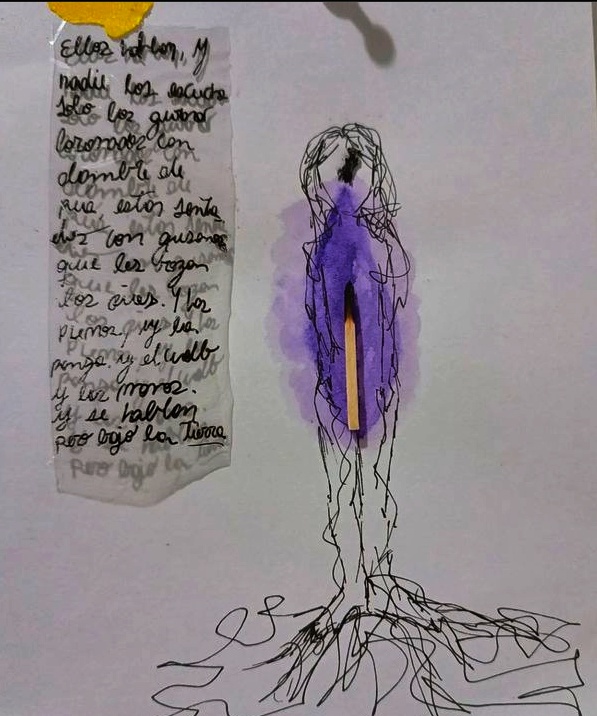 Ellos hablan, y
nadie los escucha
solo los guarda
coronados con
alambre de
pua estos senta
dos con gusanos
que les rozan
los pies. Y las
piernas, y la
panza y el
y las manos.
y se hablan
pero bajo la Tierra